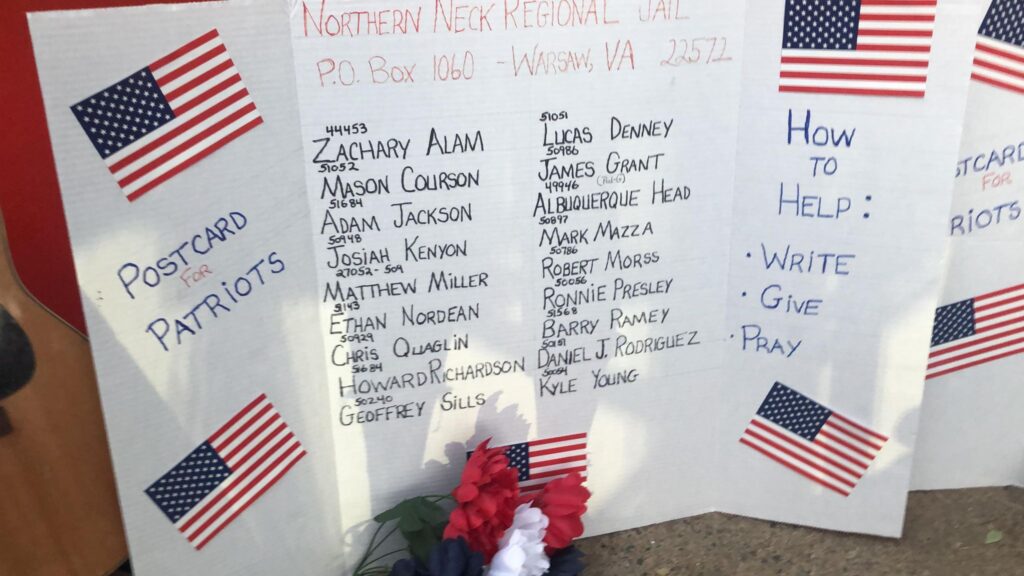 NORTHERN NECK REGIONAL JAIL
P.O. BOX 1060 - WARSAW, VA 22572
POSTCARD
FOR
PATRIOTS
44453
ZACHARY ALAM
51052
MASON COURSON
51684
ADAM JACKSON
50948
JOSIAH KENYON
27052-509
MATTHEW MILLER
51143
ETHAN NORDEAN
50429
CHRIS QUAGLIN
51684
HOWARD RICHARDSON
50240
GEOFFREY SILLS
51051
LUCAS DENNEY
50986
JAMES GRANT
49946
ALBUQUERQUE HEAD
50897
MARK MAZZA
50786
ROBERT MORSS
50056
RONNIE PRESLEY
51568
BARRY RAMEY
DANIEL J. RODRIGUEZ
KYLE YOUNG
HOW
TO
HELP:
• WRITE
• GIVE
• PRAY
STCARD
FOR
RIOTS